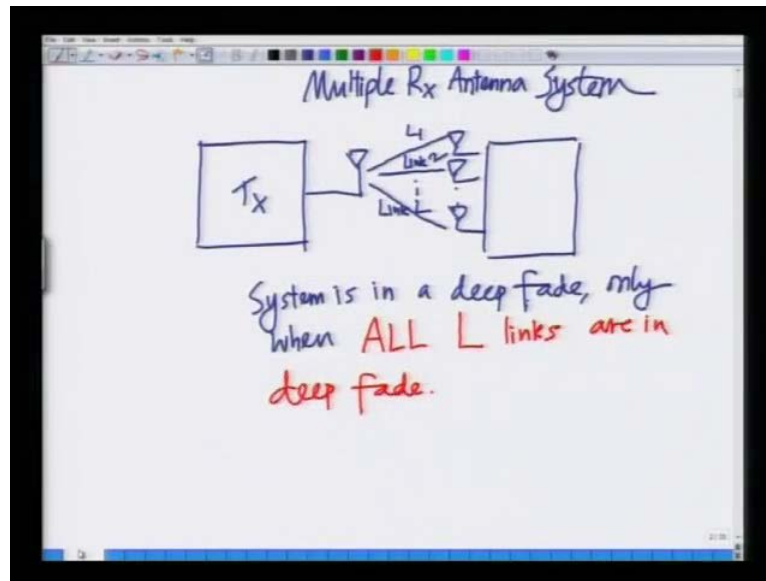 Multiple Rx Antenna System
L1
Link 2
Link L
Tx
System is in a deep fade, only
when ALL L links are in
deep fade.